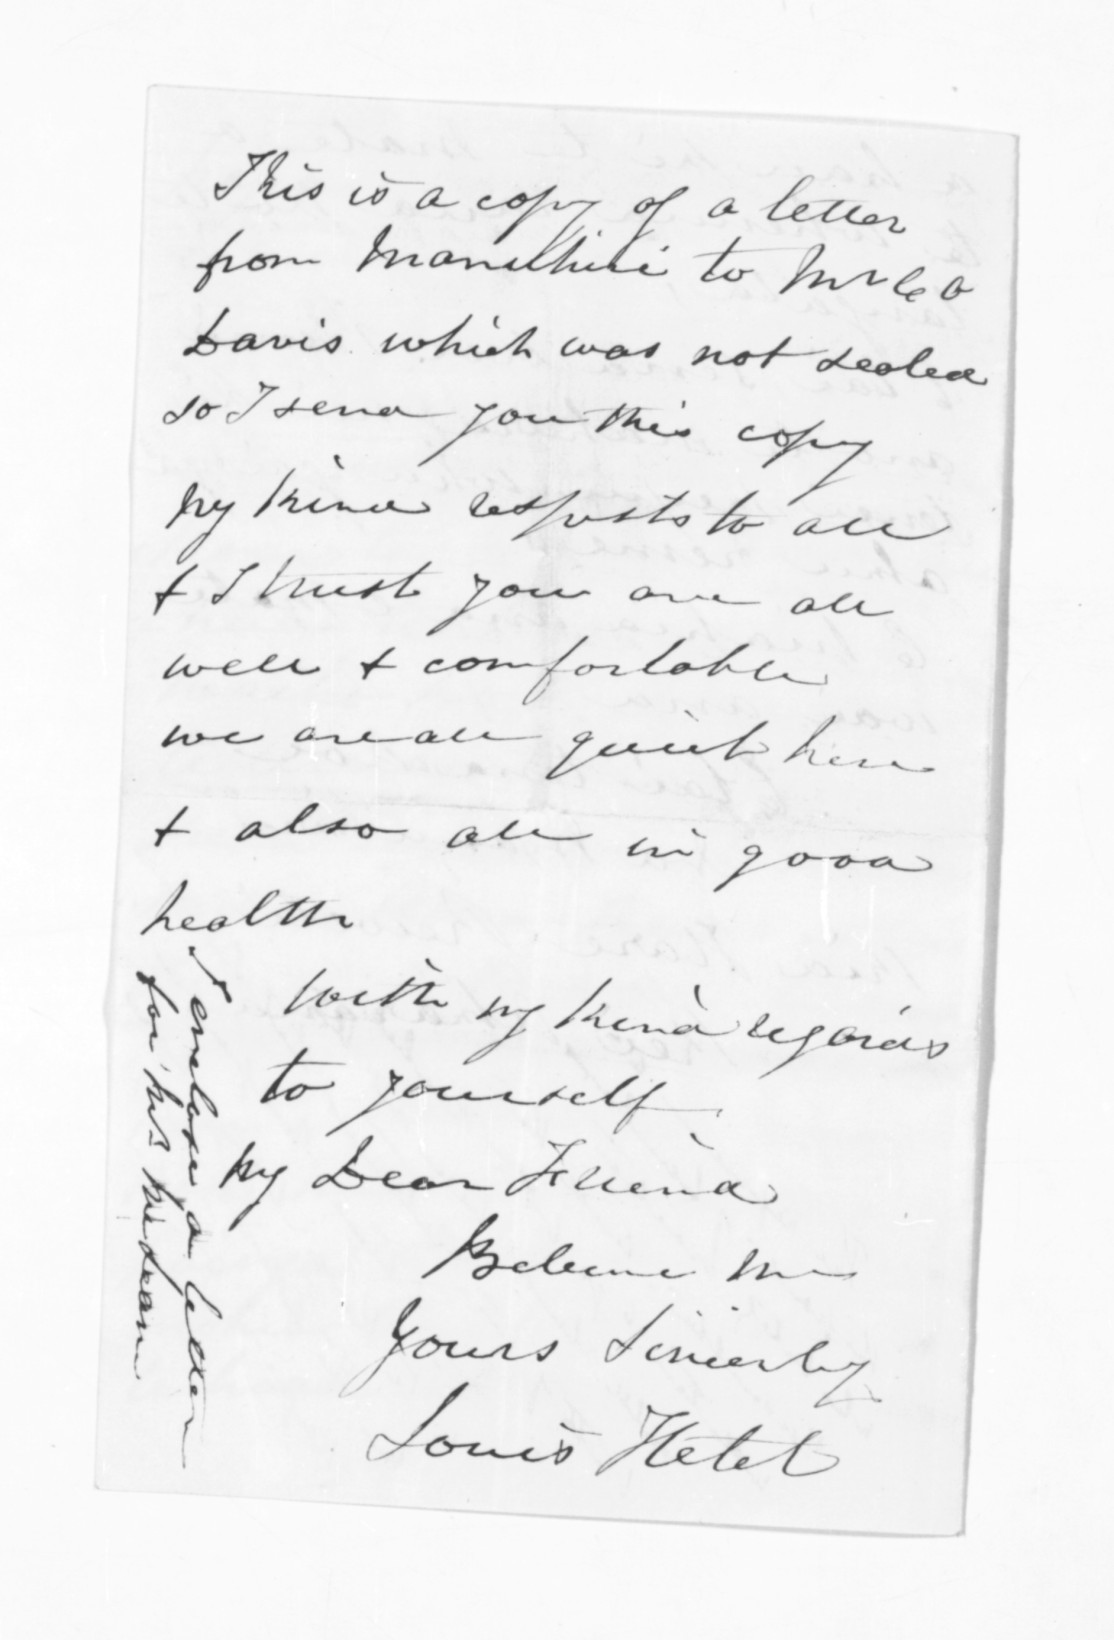 This is a copy of a letter
from Manuhiri to Mr C O
Davis which was not sealed
so I send you this copy
my kind respects to all
& I trust you are all
well & comfortable
we are all quiet here
& also all in good
health
With my kind regards
to yourself
My Dear Friend
Believe me
Yours Sincerly
Louis Hetet
I enclose a letter
for Mr